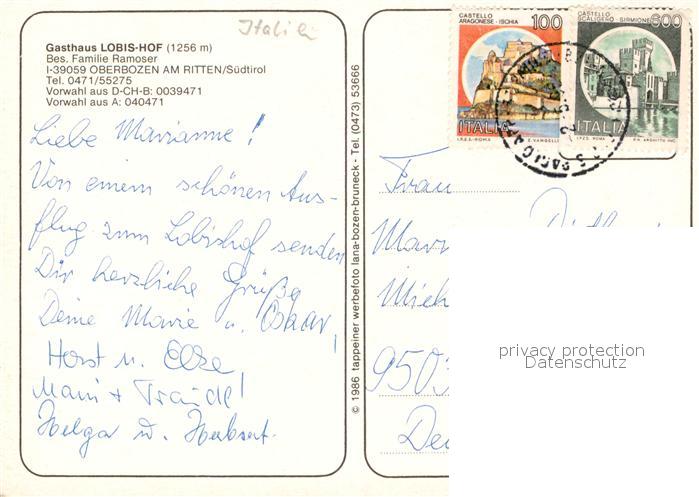 Italien
Gasthaus LOBIS-HOF (1256 m)
Bes. Familie Ramoser
I-39059 OBERBOZEN AM RITTEN/Südtirol
Tel. 0471/55275
Vorwahl aus D-CH-B: 0039471
Vorwahl aus A: 040471
Liebe Marianne!
Von einem schönen Aus-
flug zum Lobishof senden
Dir herzliche Grüße
Deine Marie u. Oskar,
Horst u. Elke
Mani + Traudl!
Helga u. Herbert.
© 1986 tappeiner werbefoto lana-bozen-bruneck - Tel. (0473) 53666
CASTELLO
ARAGONESE - ISCHIA
100
ITALIA
I.P.Z.S. - ROMA
CASTELLO
SCALIGERO - SIRMIONE
600
ITALIA
I.P.Z.S. ROMA
Frau
Mar
Mich
9503
Deu
privacy protection
Datenschutz